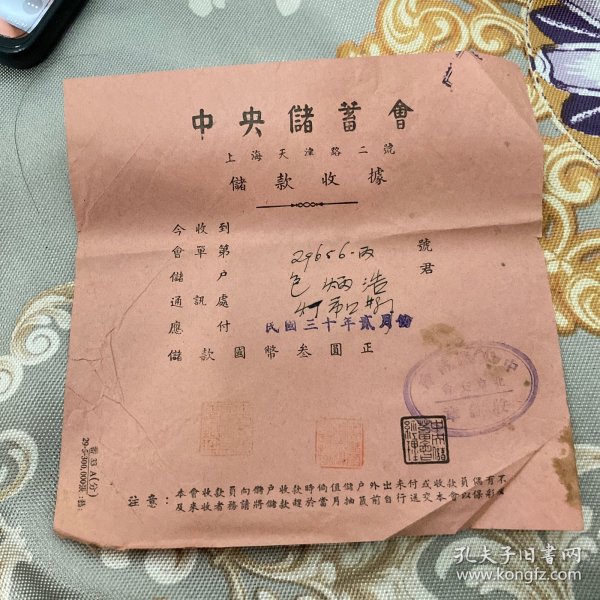 中央儲蓄會
上海天津路二號
儲款收據
今收到
會單第 29656-丙 號
儲戶 包炳浩 君
通訊處
應付 民國三十年貳月份
儲款國幣叁圓正
中央儲
注意：本會收款員向儲戶收款時倘值儲戶外出未付或收款員偶有不
及來收者務請將儲款趕於當月抽籤前自行送交本會以保彩
孔夫子旧书网
www.kongfz.com